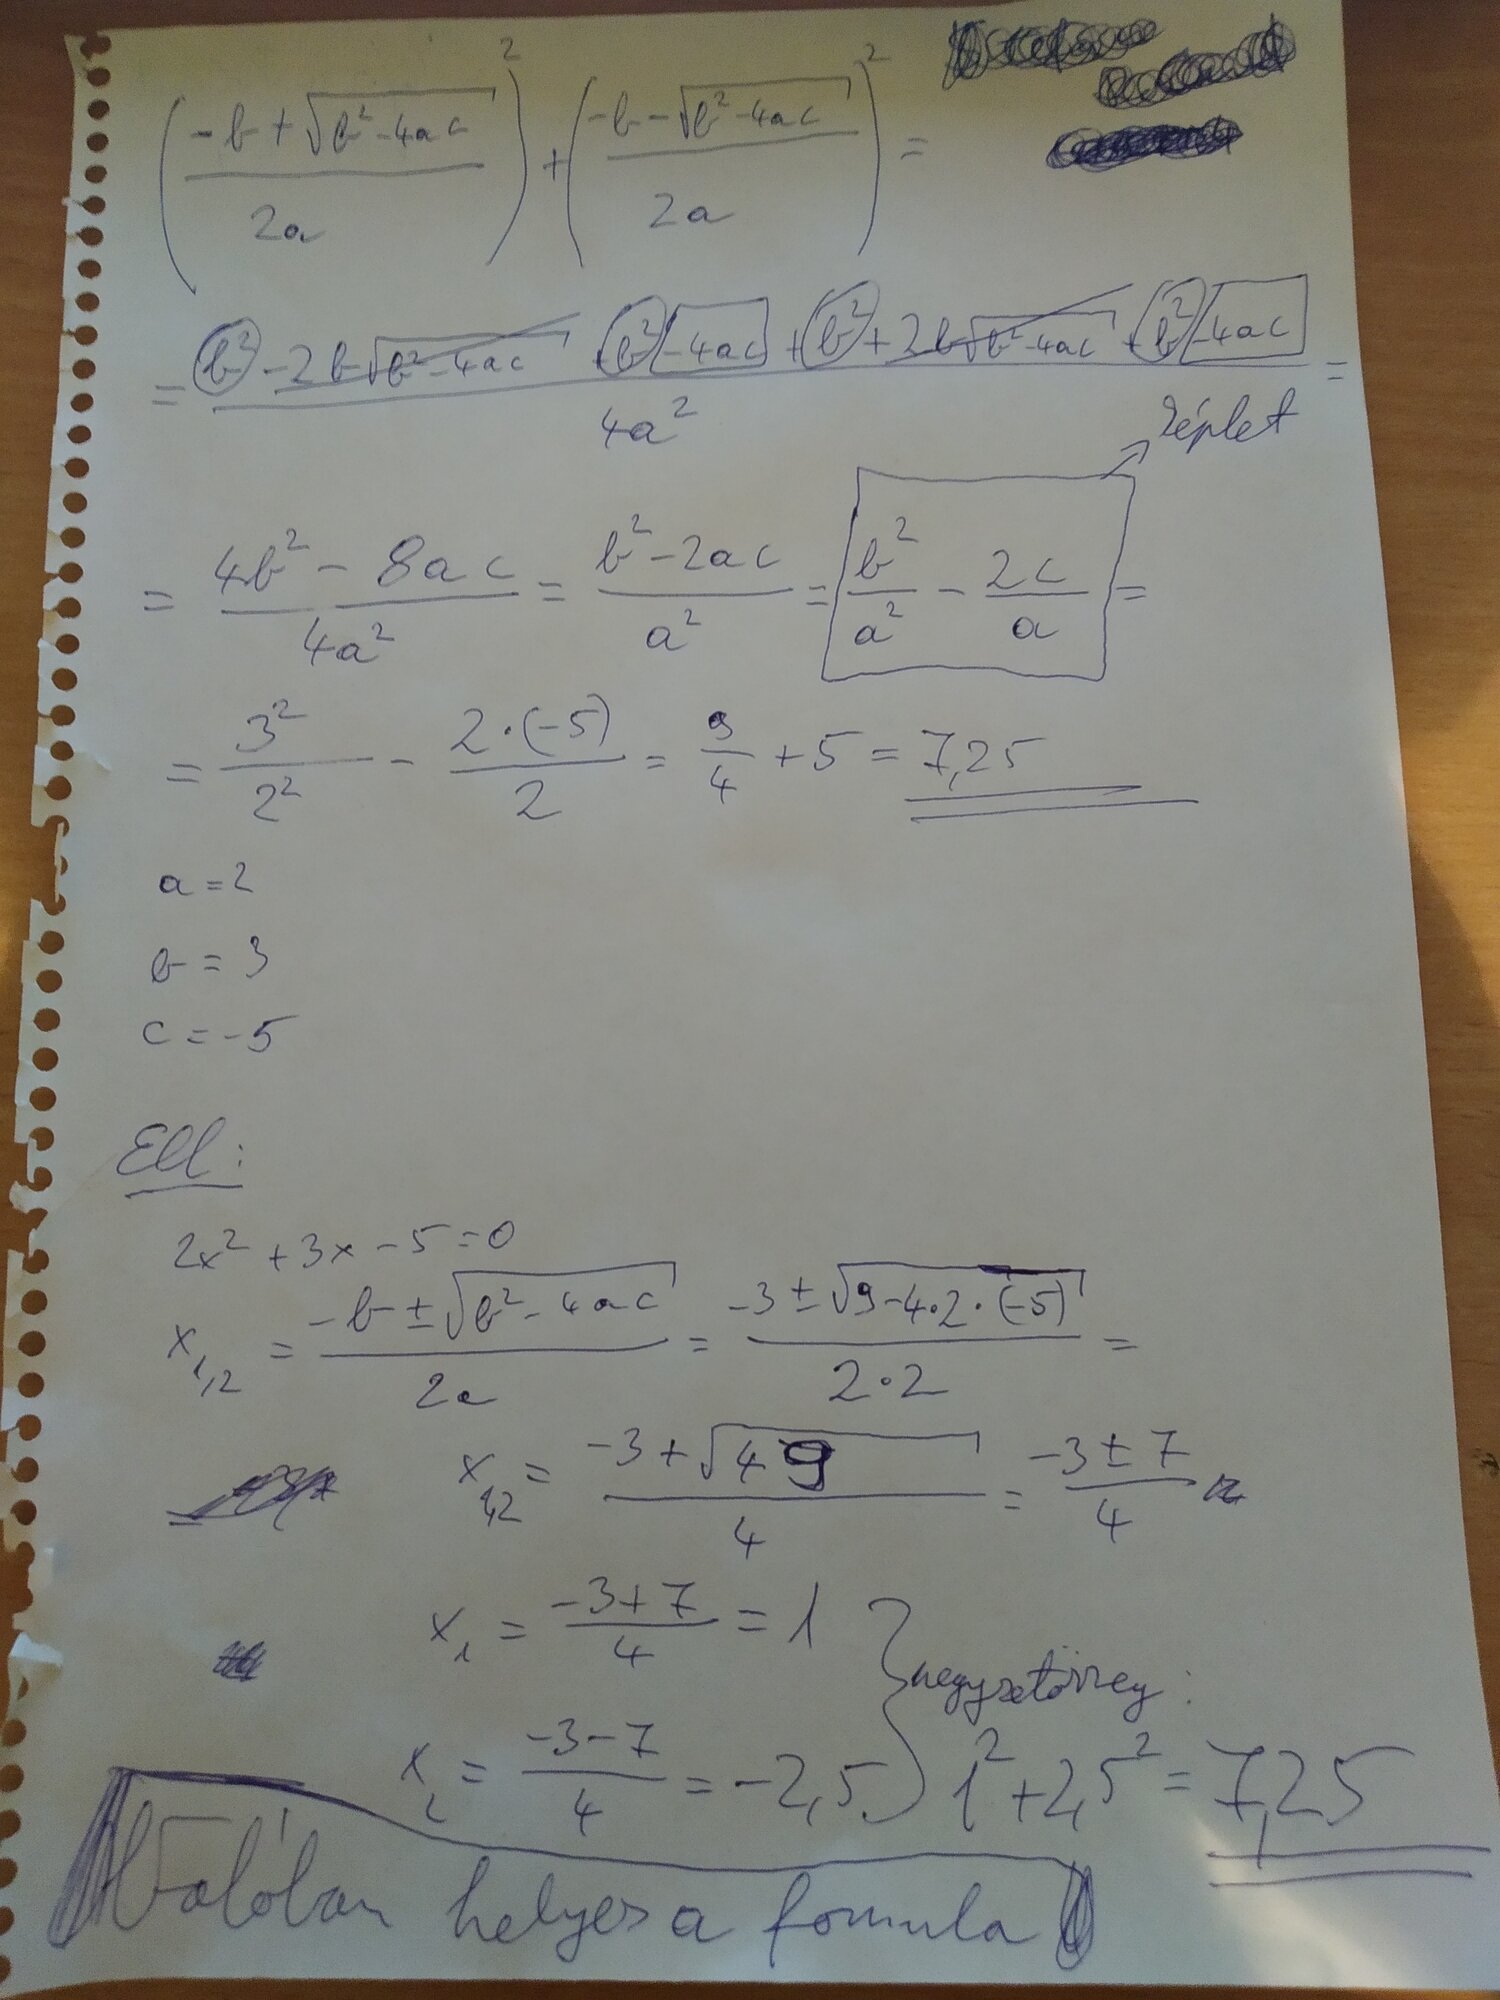 ((-b + √(b² - 4ac)) / 2a)² + ((-b - √(b² - 4ac)) / 2a)² =
= (b² - 2b√(b² - 4ac) + b² - 4ac + b² + 2b√(b² - 4ac) + b² - 4ac) / 4a² =
= (4b² - 8ac) / 4a² = (b² - 2ac) / a² = b²/a² - 2c/a = → képlet
= 3²/2² - 2·(-5)/2 = 9/4 + 5 = 7,25
a = 2
b = 3
c = -5
Ell:
2x² + 3x - 5 = 0
x₁,₂ = (-b ± √(b² - 4ac)) / 2a = (-3 ± √(9 - 4·2·(-5))) / 2·2 =
x₁,₂ = (-3 + √49) / 4 = (-3 ± 7) / 4
x₁ = (-3 + 7) / 4 = 1
négyzetösszeg:
x₂ = (-3 - 7) / 4 = -2,5 } 1² + 2,5² = 7,25
Valóban helyes a formula